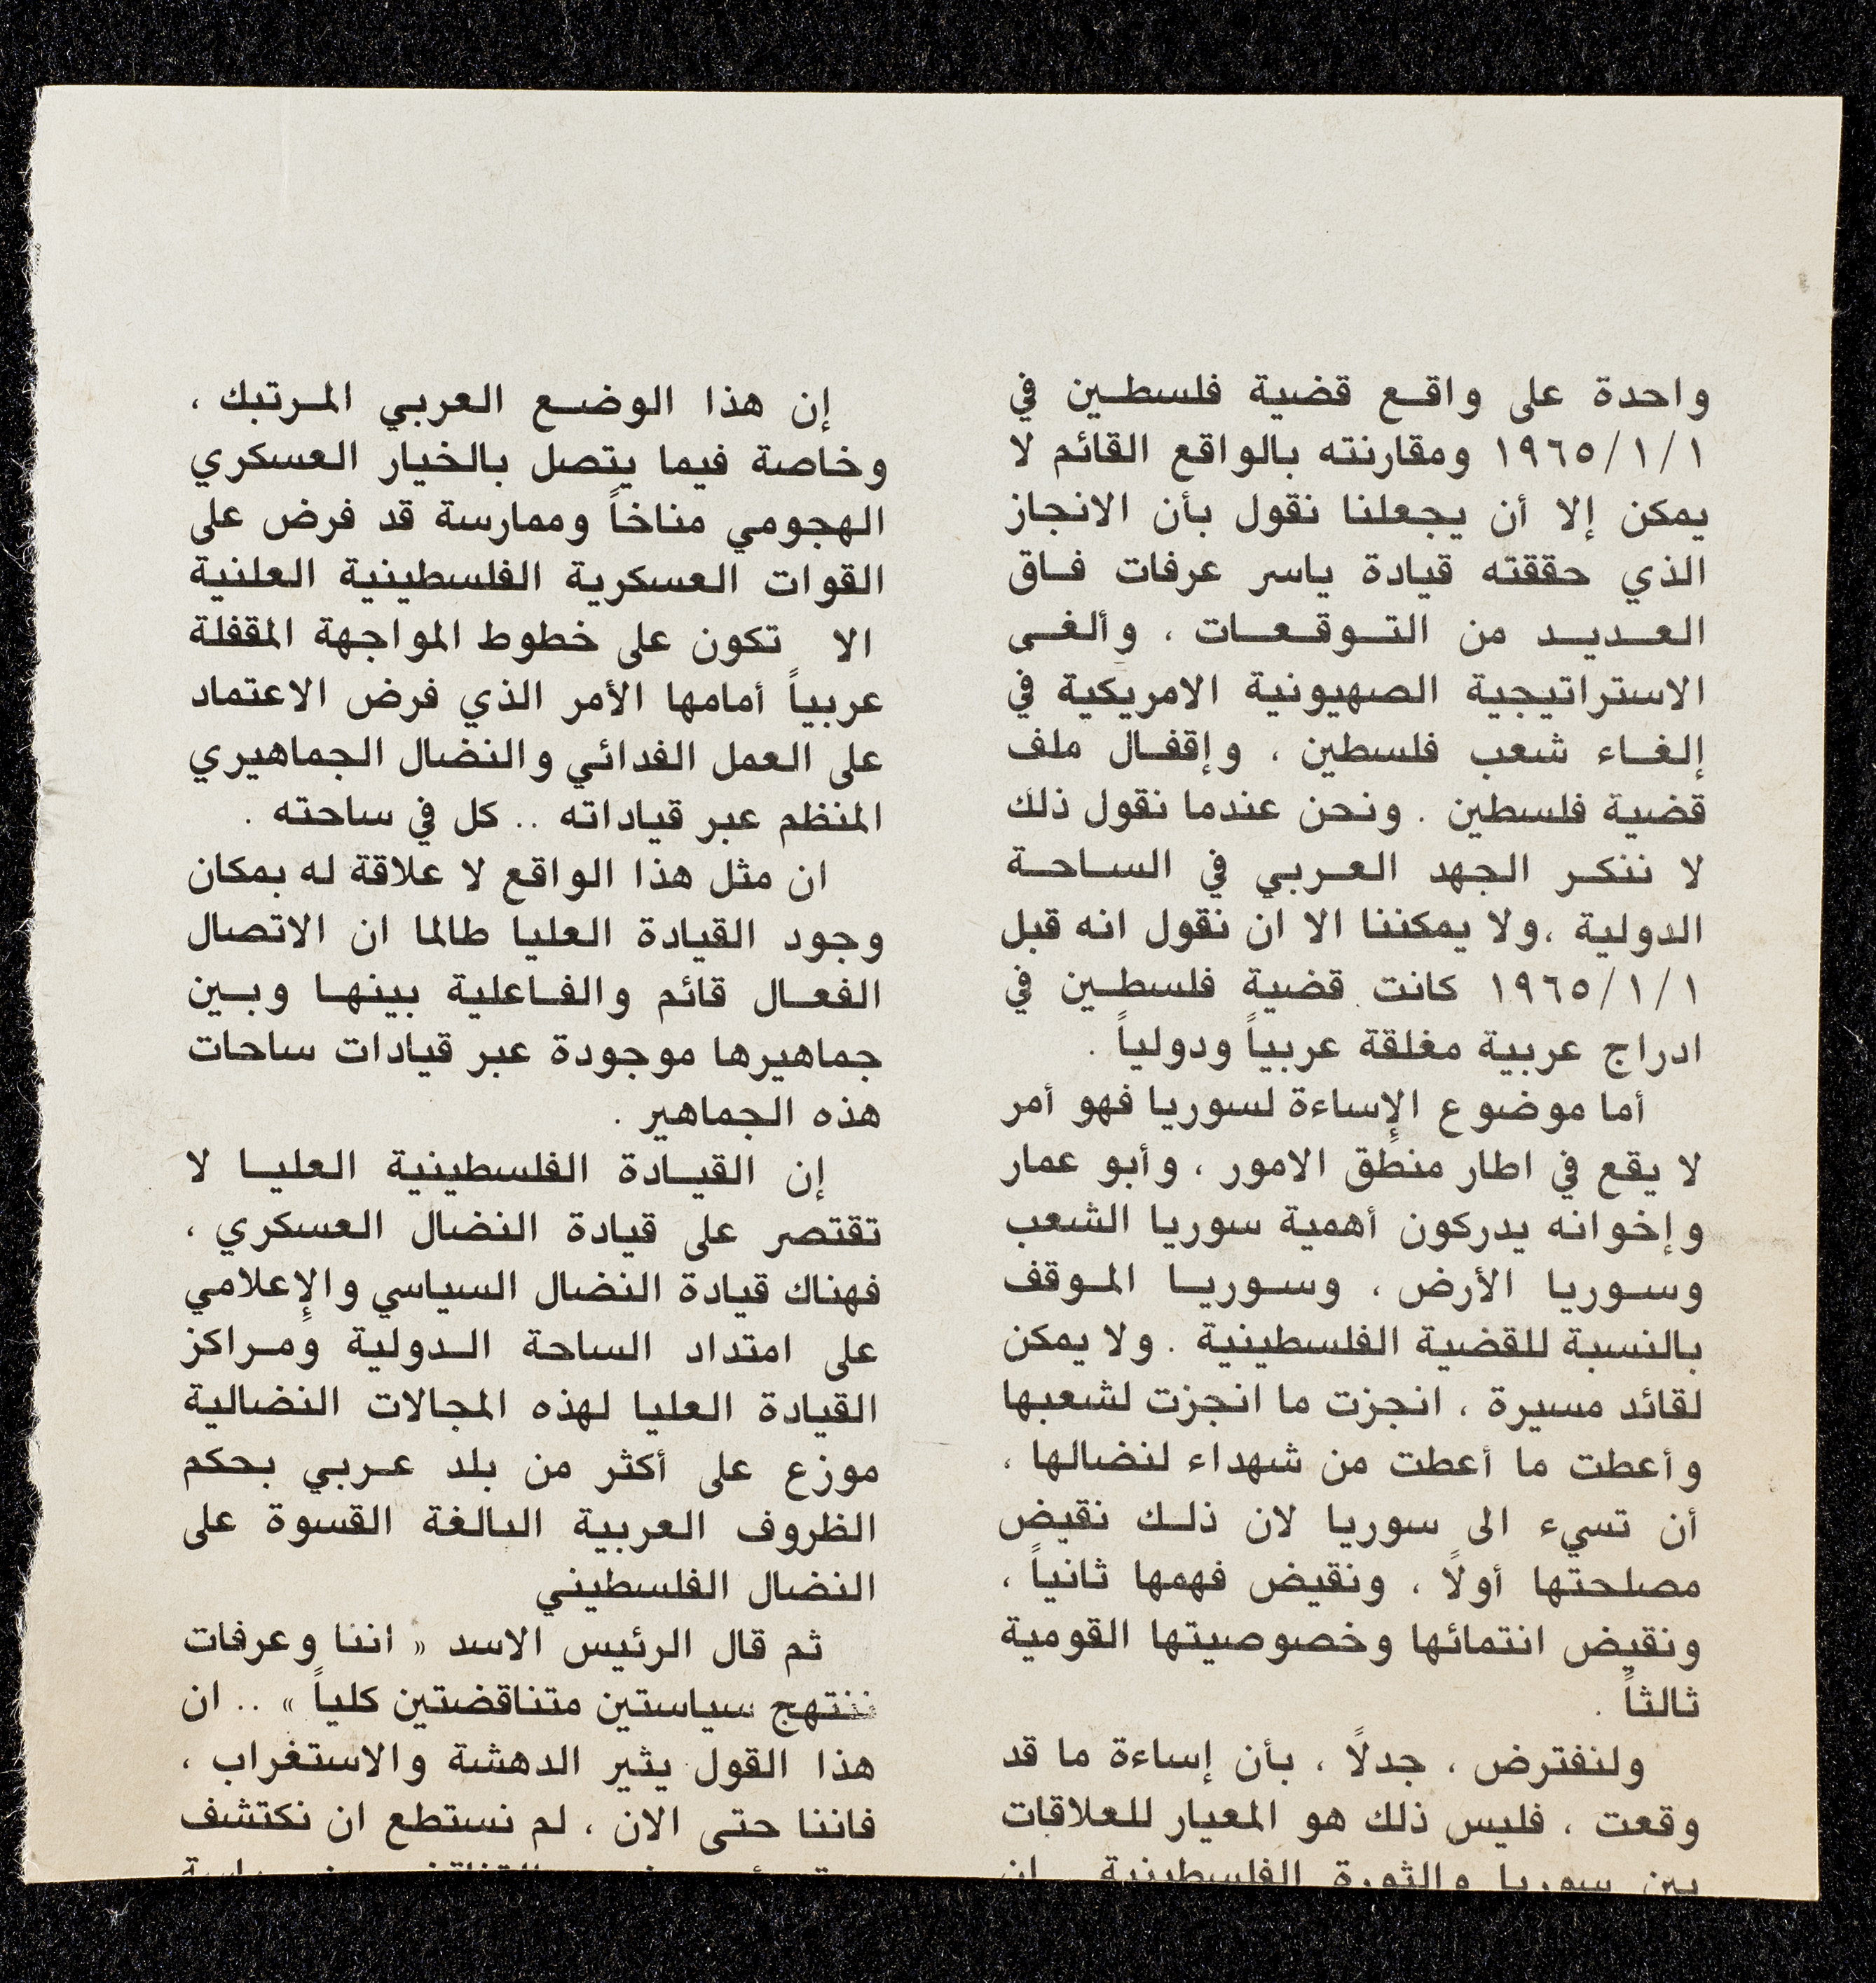 واحدة على واقع قضية فلسطين في
١٩٦٥/١/١ ومقارنته بالواقع القائم لا
يمكن إلا أن يجعلنا نقول بأن الانجاز
الذي حققته قيادة ياسر عرفات فاق
العديد من التوقعات ، وألغى
الاستراتيجية الصهيونية الامريكية في
إلغاء شعب فلسطين ، وإقفال ملف
قضية فلسطين . ونحن عندما نقول ذلك
لا ننكر الجهد العربي في الساحة
الدولية ،ولا يمكننا الا ان نقول انه قبل
١٩٦٥/١/١ كانت قضية فلسطين في
ادراج عربية مغلقة عربياً ودولياً .
أما موضوع الإساءة لسوريا فهو أمر
لا يقع في اطار منطق الامور ، وأبو عمار
وإخوانه يدركون أهمية سوريا الشعب
وسوريا الأرض ، وسوريا الموقف
بالنسبة للقضية الفلسطينية . ولا يمكن
لقائد مسيرة ، انجزت ما انجزت لشعبها
وأعطت ما أعطت من شهداء لنضالها ،
أن تسيء الى سوريا لان ذلك نقيض
مصلحتها أولاً ، ونقيض فهمها ثانياً ،
ونقيض انتمائها وخصوصيتها القومية
ثالثاً .
ولنفترض ، جدلاً ، بأن إساءة ما قد
وقعت ، فليس ذلك هو المعيار للعلاقات
بين سوريا والثورة الفلسطينية
إن هذا الوضع العربي المرتبك ،
وخاصة فيما يتصل بالخيار العسكري
الهجومي مناخاً وممارسة قد فرض على
القوات العسكرية الفلسطينية العلنية
الا تكون على خطوط المواجهة المقفلة
عربياً أمامها الأمر الذي فرض الاعتماد
على العمل الفدائي والنضال الجماهيري
المنظم عبر قياداته .. كل في ساحته .
ان مثل هذا الواقع لا علاقة له بمكان
وجود القيادة العليا طالما ان الاتصال
الفعال قائم والفاعلية بينها وبين
جماهيرها موجودة عبر قيادات ساحات
هذه الجماهير .
إن القيادة الفلسطينية العليا لا
تقتصر على قيادة النضال العسكري ،
فهناك قيادة النضال السياسي والإعلامي
على امتداد الساحة الدولية ومراكز
القيادة العليا لهذه المجالات النضالية
موزع على أكثر من بلد عربي بحكم
الظروف العربية البالغة القسوة على
النضال الفلسطيني
ثم قال الرئيس الاسد « اننا وعرفات
ننتهج سياستين متناقضتين كلياً » .. ان
هذا القول يثير الدهشة والاستغراب ،
فاننا حتى الان ، لم نستطع ان نكتشف